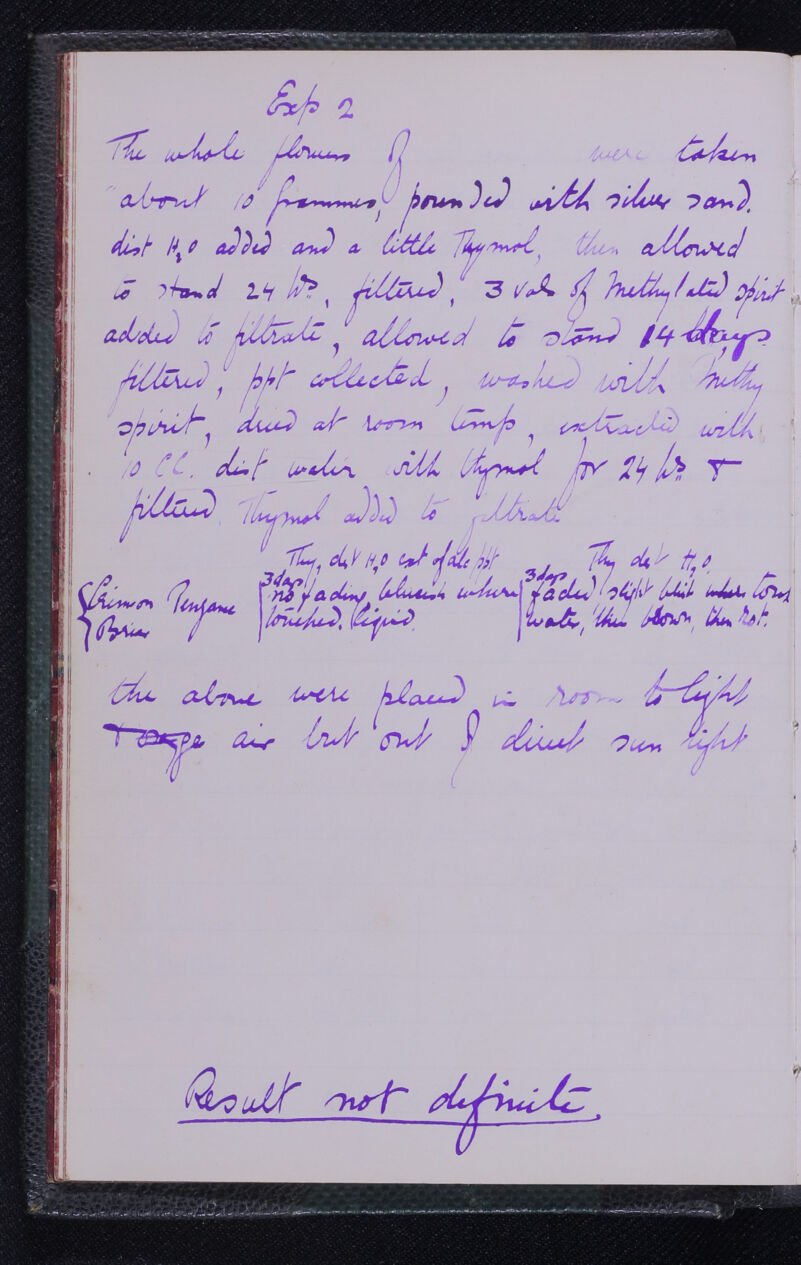 Exp 2
The whole flowers of were taken
about 10 grammes, pounded with silver sand.
dist H2O added and a little Thymol, then allowed
to stand 24 hrs, filtered, 3 vols of Methylated spirit
added to filtrate, allowed to stand 14 days
filtered, ppt collected, washed with Methy
spirit, dried at room temp, extracted with
10 CC. dist water with thymol for 24 hrs &
filtered. Thymol added to filtrate
Thy, dist H2O ext of alc ppt Thy dist H2O
3 days 3 days
Crimson no fading blueish where faded slight
Brier touched. liquid water, then brown, then rot.
the above were placed in room to light
air but out of direct sun light
Result not definite.